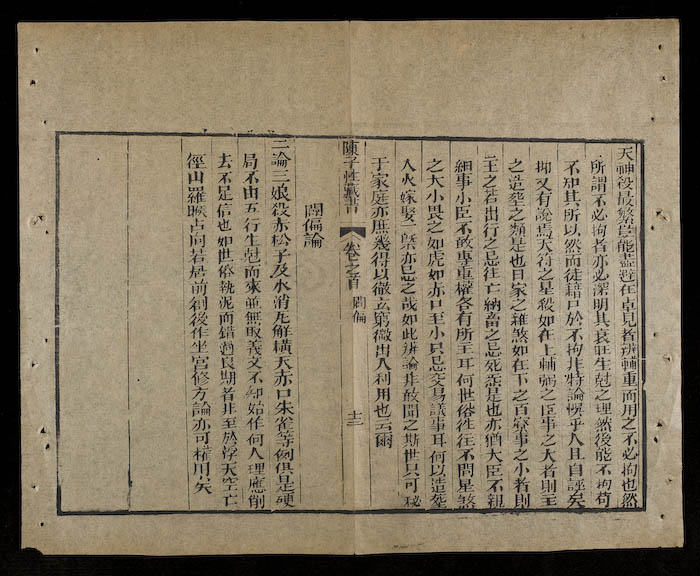 天神殺最繁豈能盡避在卓見者辨輔重而用之不必拘也然
所謂不必拘者亦必深明其衰旺生尅之理然後能不拘苟
不知其所以然而徒藉口於不拘非特論悞乎人且自誤矣
抑又有說焉天符之星殺如在上輔弼之臣事之大者則主
之造塟之類是也日家之雜煞如在下之百寮事之小者則
主之若出行之忌往亡納畜之忌死炁是也亦猶大臣不親
細事小臣不敢專重權各有所主耳何世俗徃徃不問星煞
之大小畏之如虎如赤口至小只忌交易議事耳何以造塟
入火嫁娶一槩亦忌之哉如此辨論非敢聞之斯世只可秘
于家庭亦庶幾得以徹玄窮微出入利用也云爾
陳子性藏書 卷之首 闢偏 十三
闢偏論
一論三娘殺赤松子及水消瓦解橫天赤口朱雀等例俱是硬
局不由五行生尅而來並無取義又不知始作何人理應削
去不足信也如世俗執泥而錯過良期者非至於浮天空亡
徑山羅睺占向若是前創後作坐宮修方論亦可權用矣